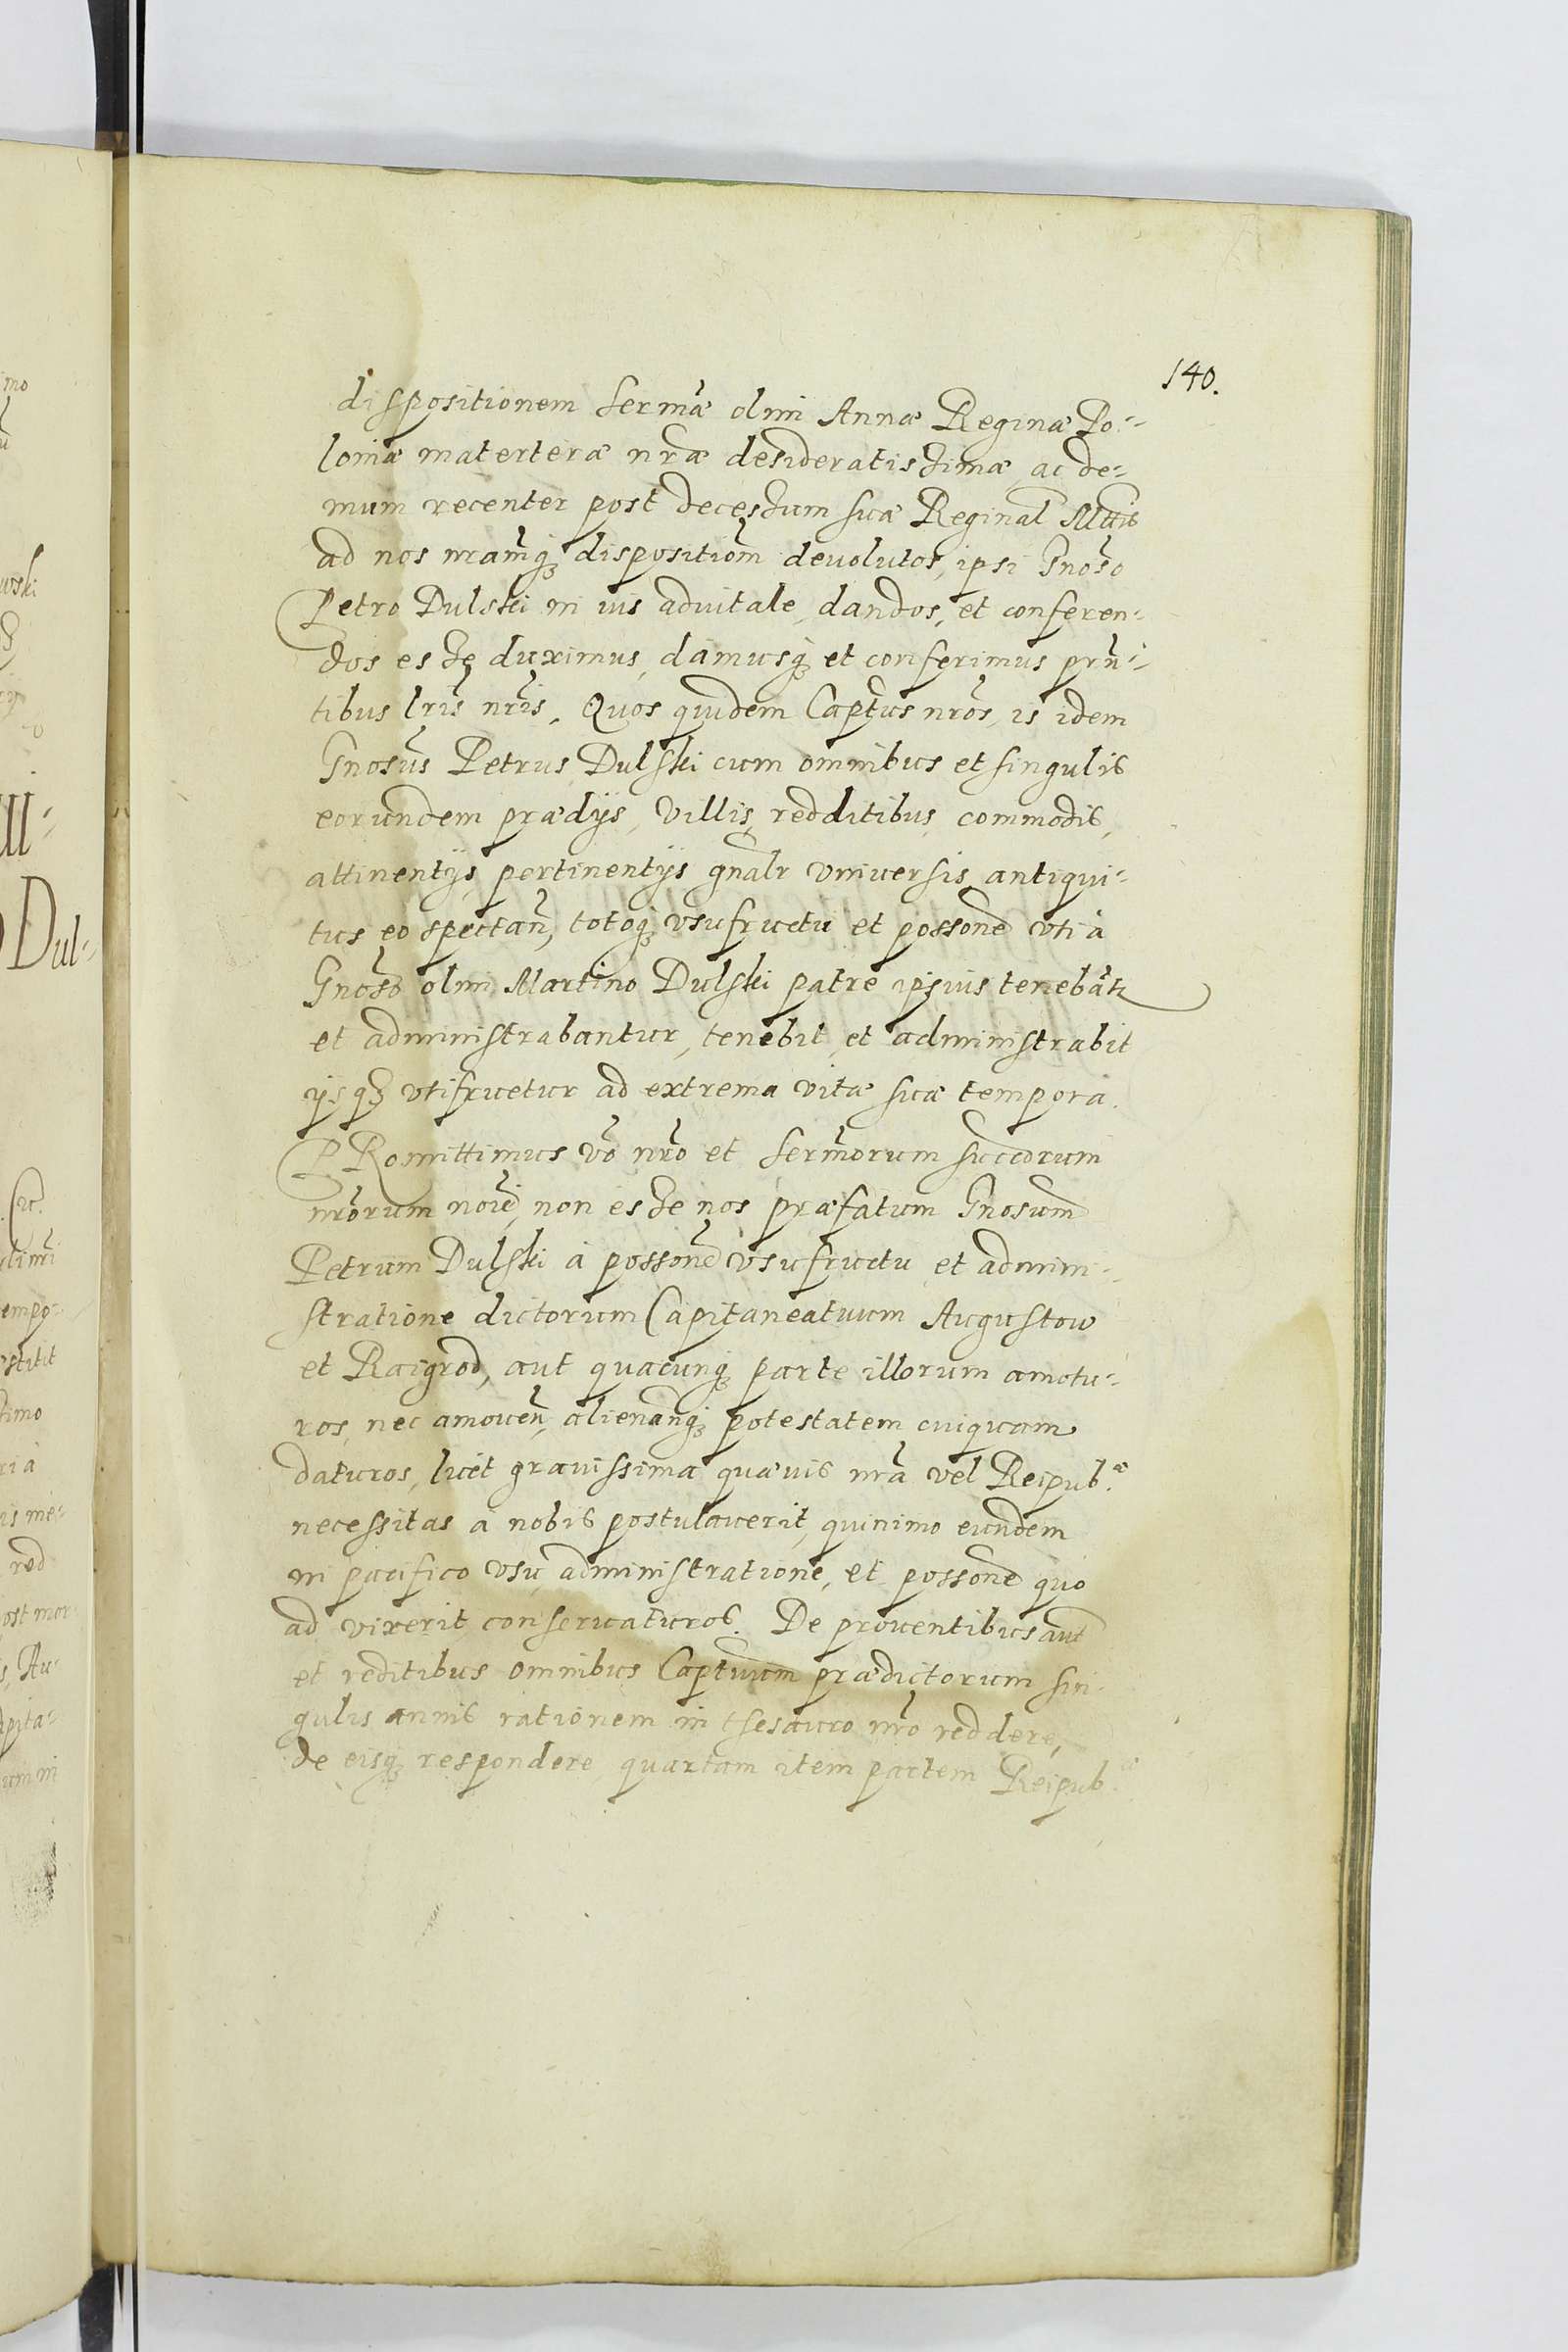 140.
dispositionem Sermæ olim Annæ Reginæ Po-
loniæ materteræ nræ desideratissimæ, ac de-
mum recenter post decessum suæ Reginal Mttis
ad nos nramq dispositiom devolutos, ipsi Gnoso
Petro Dulski in ius aduitale, dandos, et conferen-
dos esse duximus, damusq et conferimus prn-
tibus lris nris. Quos quidem Captus nros, is idem
Gnosus Petrus Dulski cum omnibus et singulis
eorundem prædijs, Villis, redditibus, commodis,
attinentijs, pertinentijs gnalr vniuersis, antiqui-
tus eo spectan, totoq vsufructu et possone vti à
Gnoso olim Martino Dulski patre ipsius tenebatr
et administrabantur, tenebit, et administrabit
ijsq vtifruetur ad extrema vitæ suæ tempora.
PRomittimus vo nro et Sermorum succorum
nrorum noie, non esse nos præfatum Gnosum
Petrum Dulski à possone vsufructu et admini-
stratione dictorum Capitaneatuum Augustow
et Raigrod, aut quacunq parte illorum amotu-
ros, nec amouen, alienanq potestatem cuiquam
daturos, licet grauissima quæuis nra vel Reipub.æ
necessitas à nobis postulauerit, quinimo eundem
in pacifico vsu, administratione, et possone quo
ad vixerit conseruaturos. De prouentibus aut
et reditibus omnibus Captuum prædictorum sin-
gulis annis rationem in thesauro nro reddere,
de eisq respondere, quartam item partem Reipub.æ